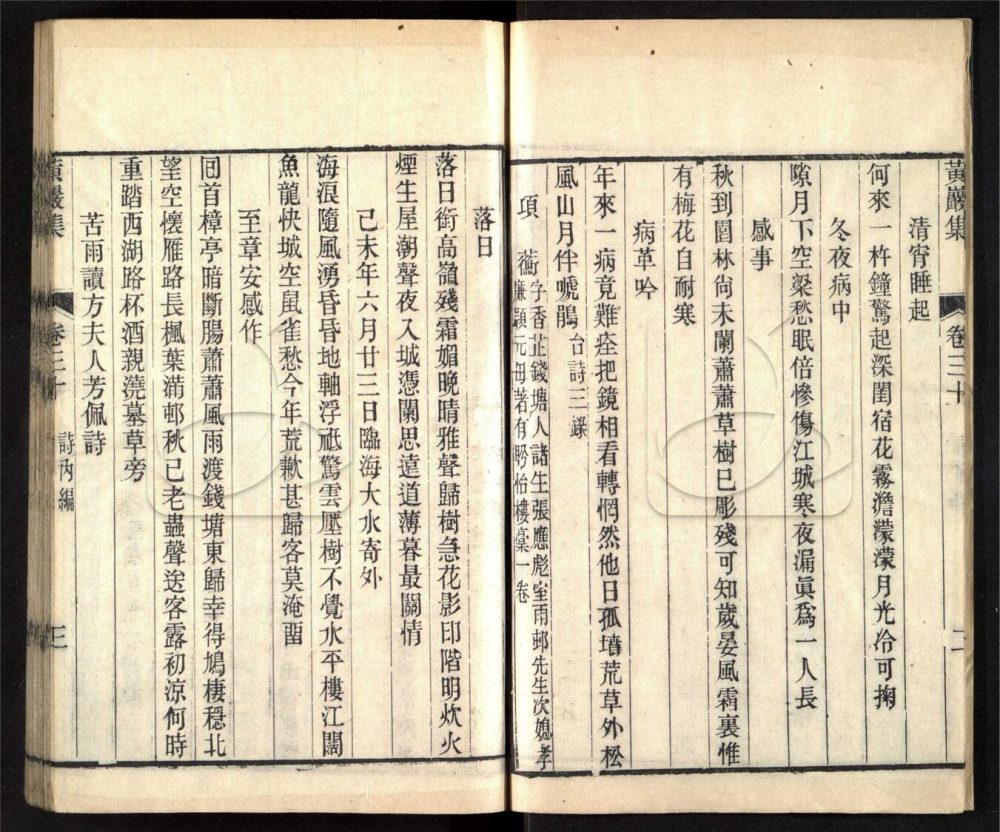 黃巖集　卷三十　二
清宵睡起
何來一杵鐘驚起深閨宿花霧澹濛濛月光冷可掬
冬夜病中
隙月下空梁愁眠倍慘傷江城寒夜漏眞爲一人長
感事
秋到園林尙未闌蕭蕭草樹已彫殘可知歲晏風霜裏惟
有梅花自耐寒
病革吟
年來一病竟難痊把鏡相看轉惘然他日孤墳荒草外松
風山月伴嗁鵑　台詩三錄
項蘅
字香芷錢塘人諸生張應彪室雨邨先生次媳孝
廉顯元母著有盻怡樓稾一卷
落日
落日銜高嶺殘霜媚晚晴雅聲歸樹急花影印階明炊火
煙生屋潮聲夜入城憑闌思遠道薄暮最關情
己未年六月廿三日臨海大水寄外
海浪隨風湧昏昏地軸浮祗驚雲壓樹不覺水平樓江闊
魚龍快城空鼠雀愁今年荒歉甚歸客莫淹畱
至章安感作
回首樟亭暗斷腸蕭蕭風雨渡錢塘東歸幸得鳩棲穩北
望空懷雁路長楓葉滿邨秋已老蟲聲送客露初涼何時
重踏西湖路杯酒親澆墓草旁
苦雨讀方夫人芳佩詩
黃巖集　卷三十　詩內編　三